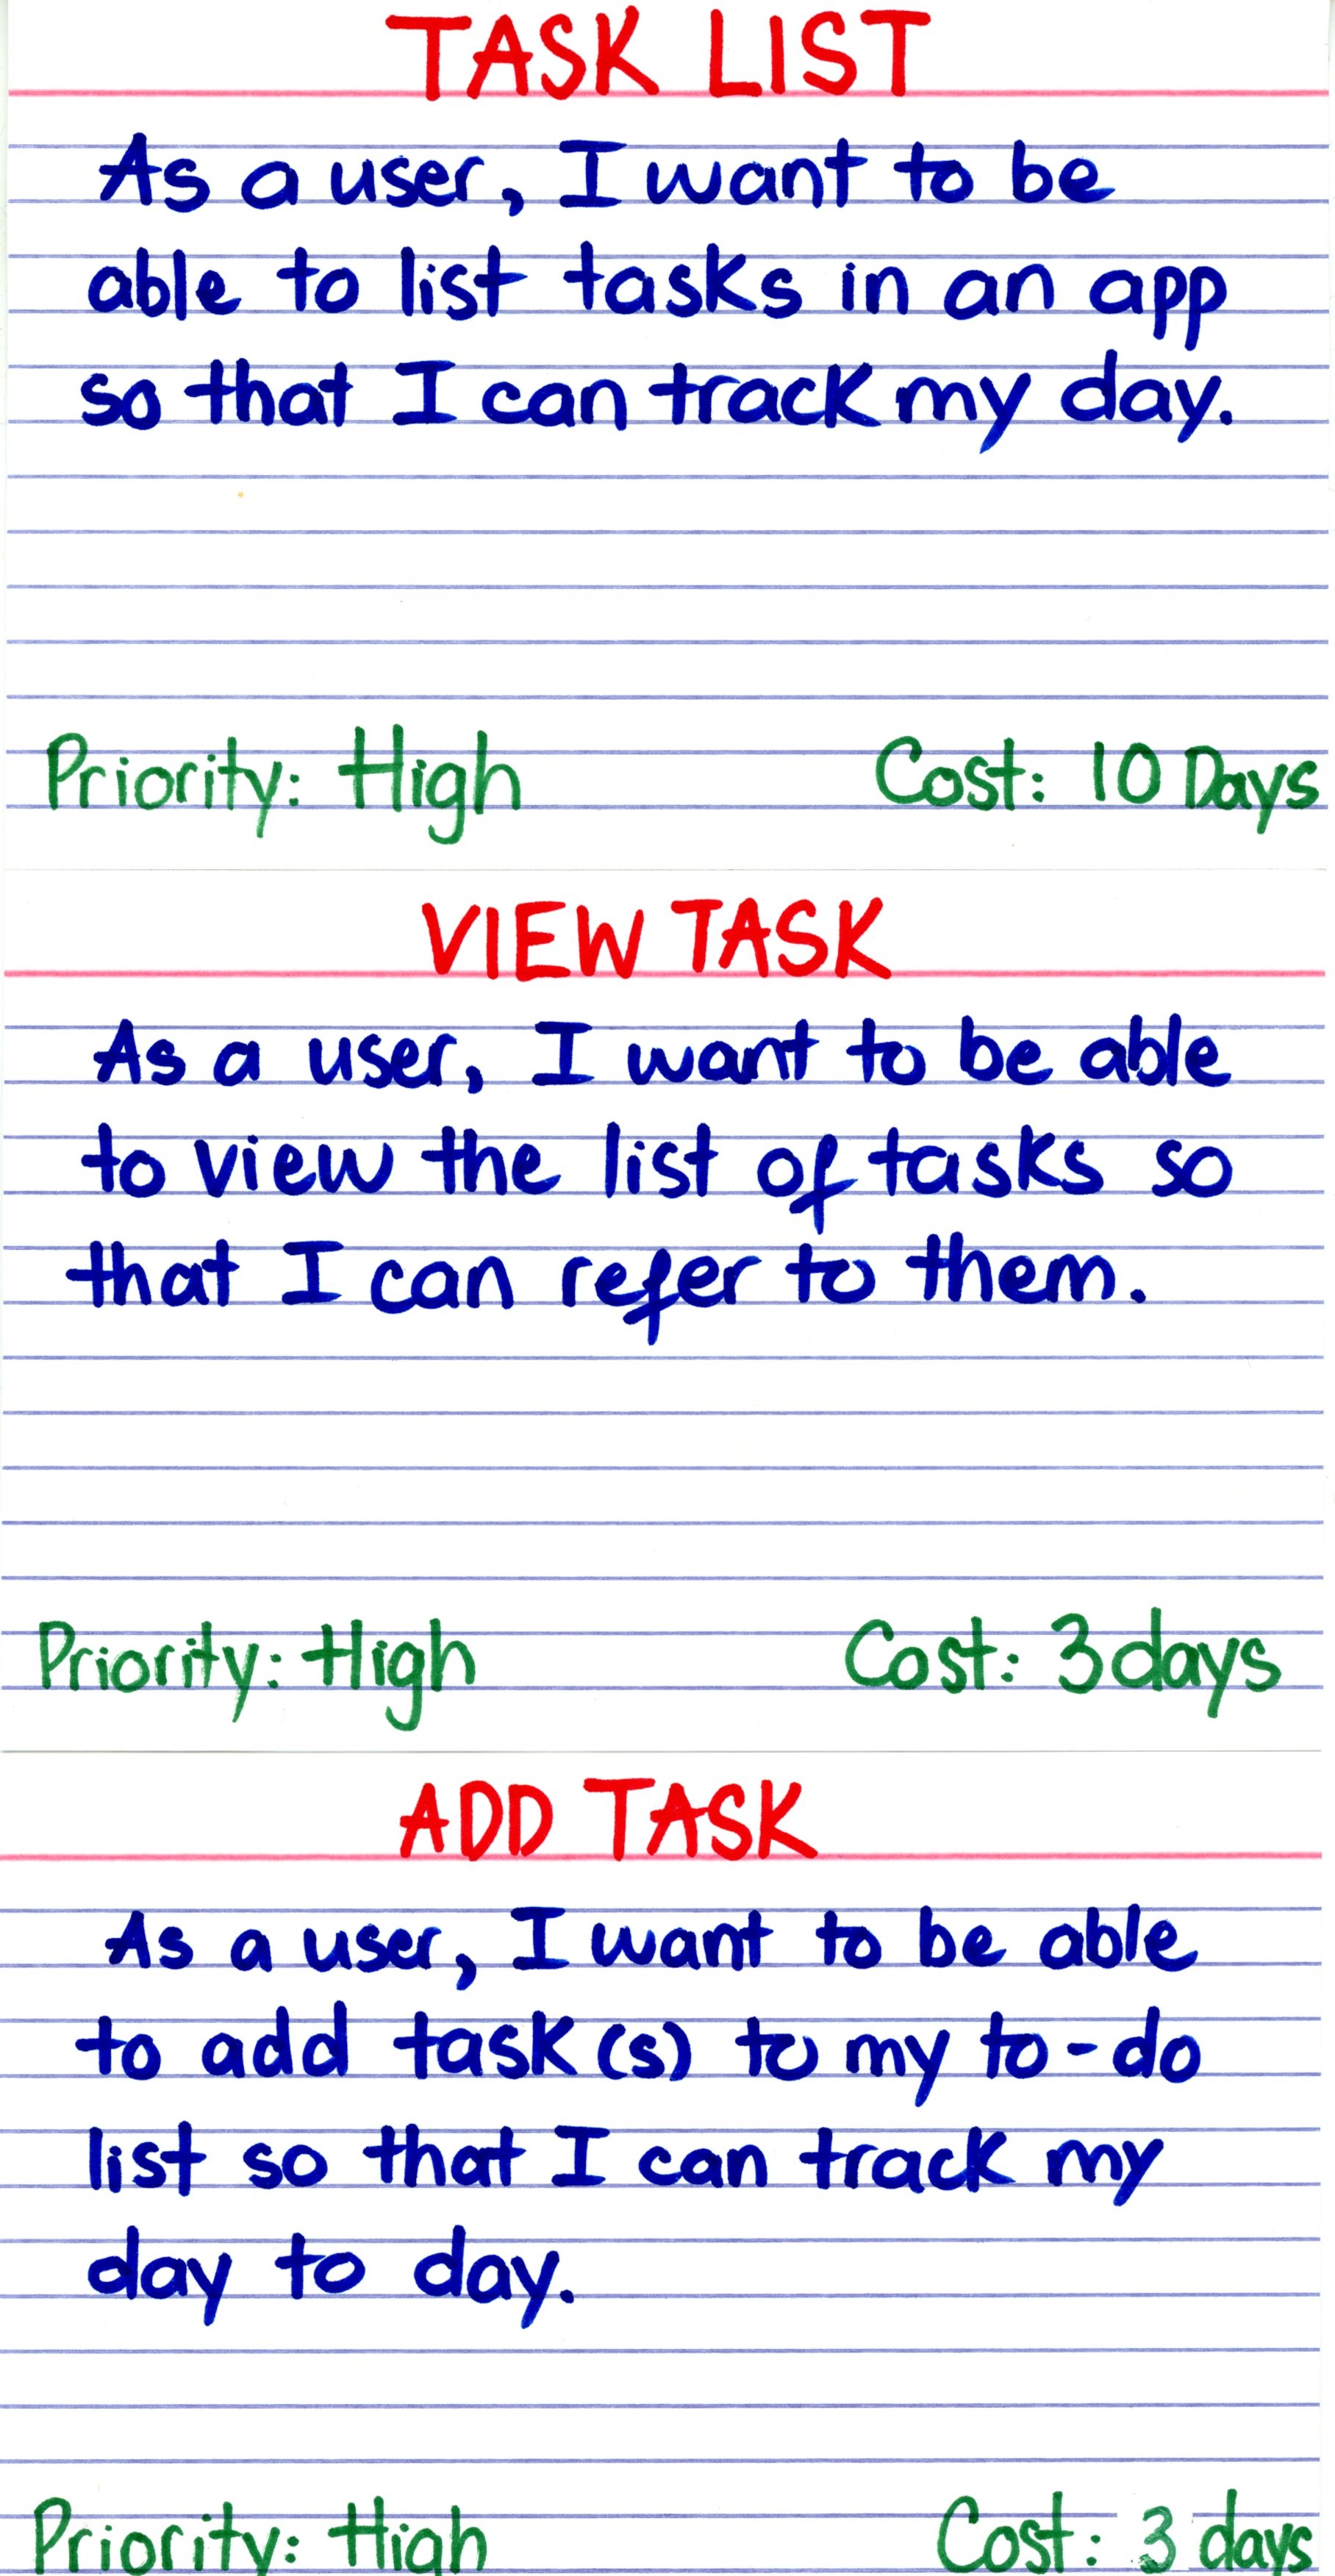 TASK LIST
As a user, I want to be
able to list tasks in an app
so that I can track my day.
Priority: High Cost: 10 Days
VIEW TASK
As a user, I want to be able
to view the list of tasks so
that I can refer to them.
Priority: High Cost: 3 days
ADD TASK
As a user, I want to be able
to add task(s) to my to-do
list so that I can track my
day to day.
Priority: High Cost: 3 days